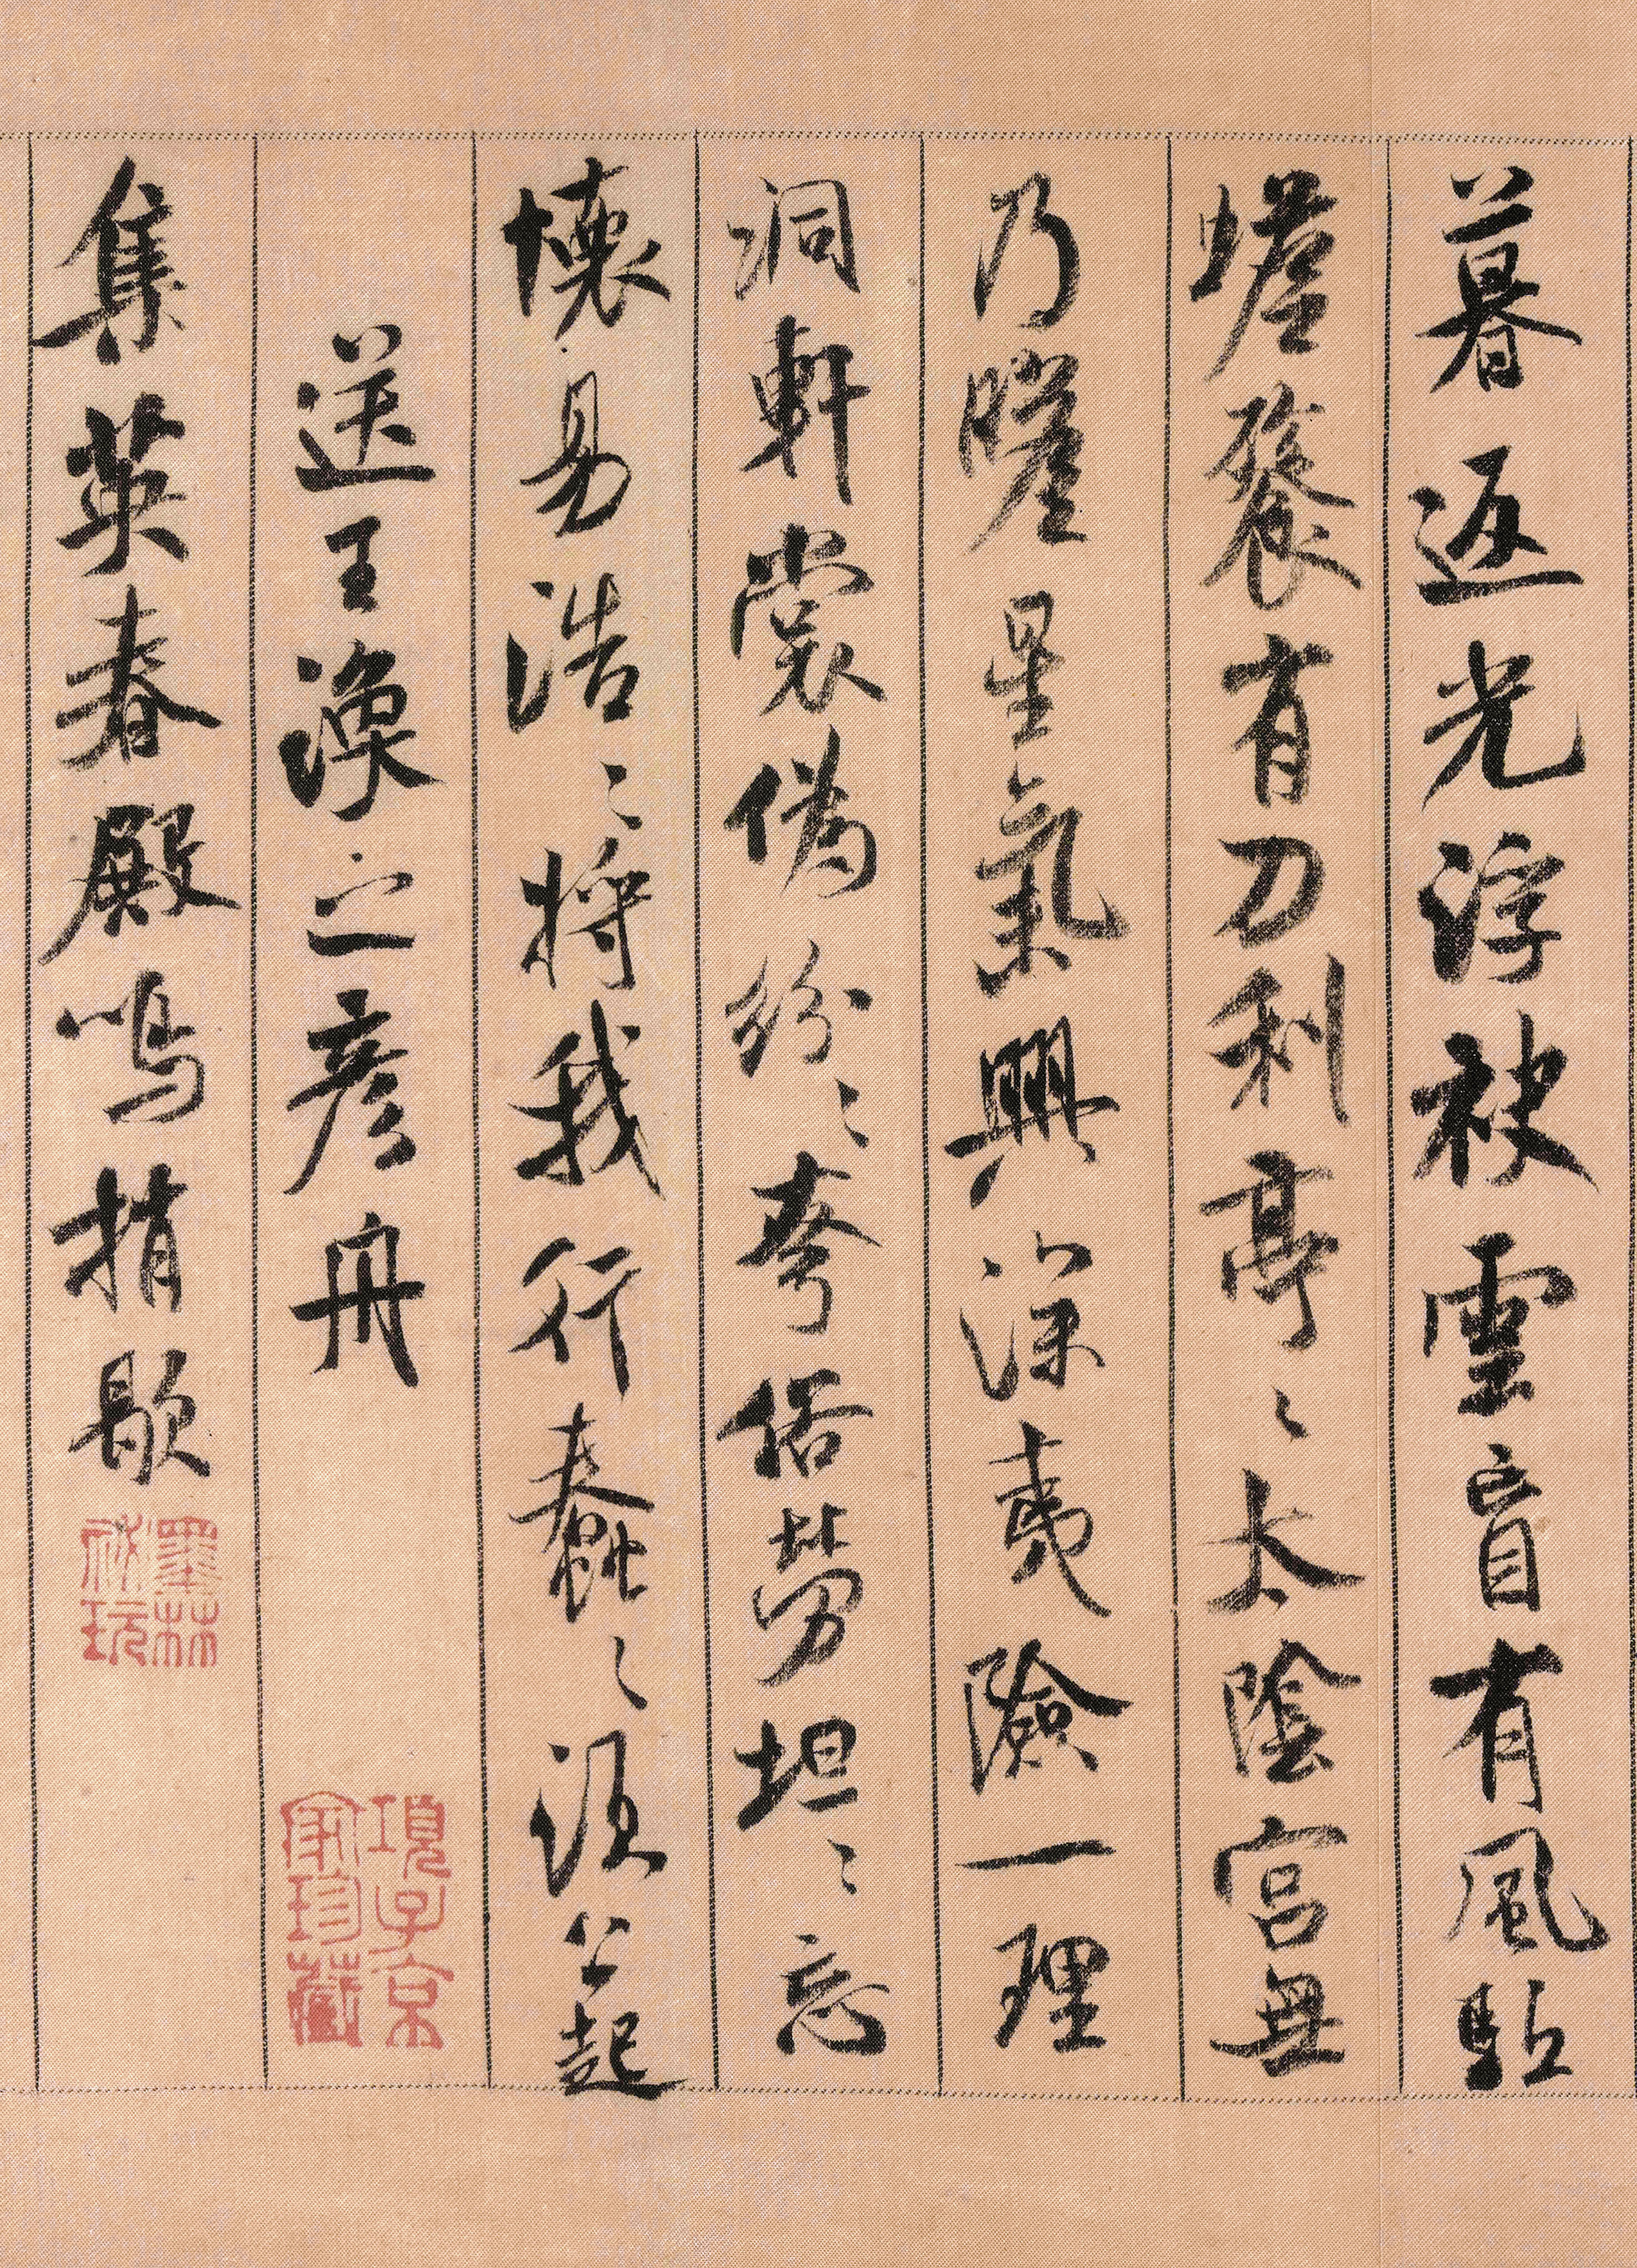 暮返光浮袂雲盲有風駈
蟾餮有刀利亭〻太陰宮無
乃瞻星氣興深夷險一理
洞軒裳偽紛〻夸俗勞坦〻忘
懷易浩〻將我行蠢〻須公起
送王渙之彥舟
項子京
家珍藏
集英春殿鳴捎歇
墨林
祕玩